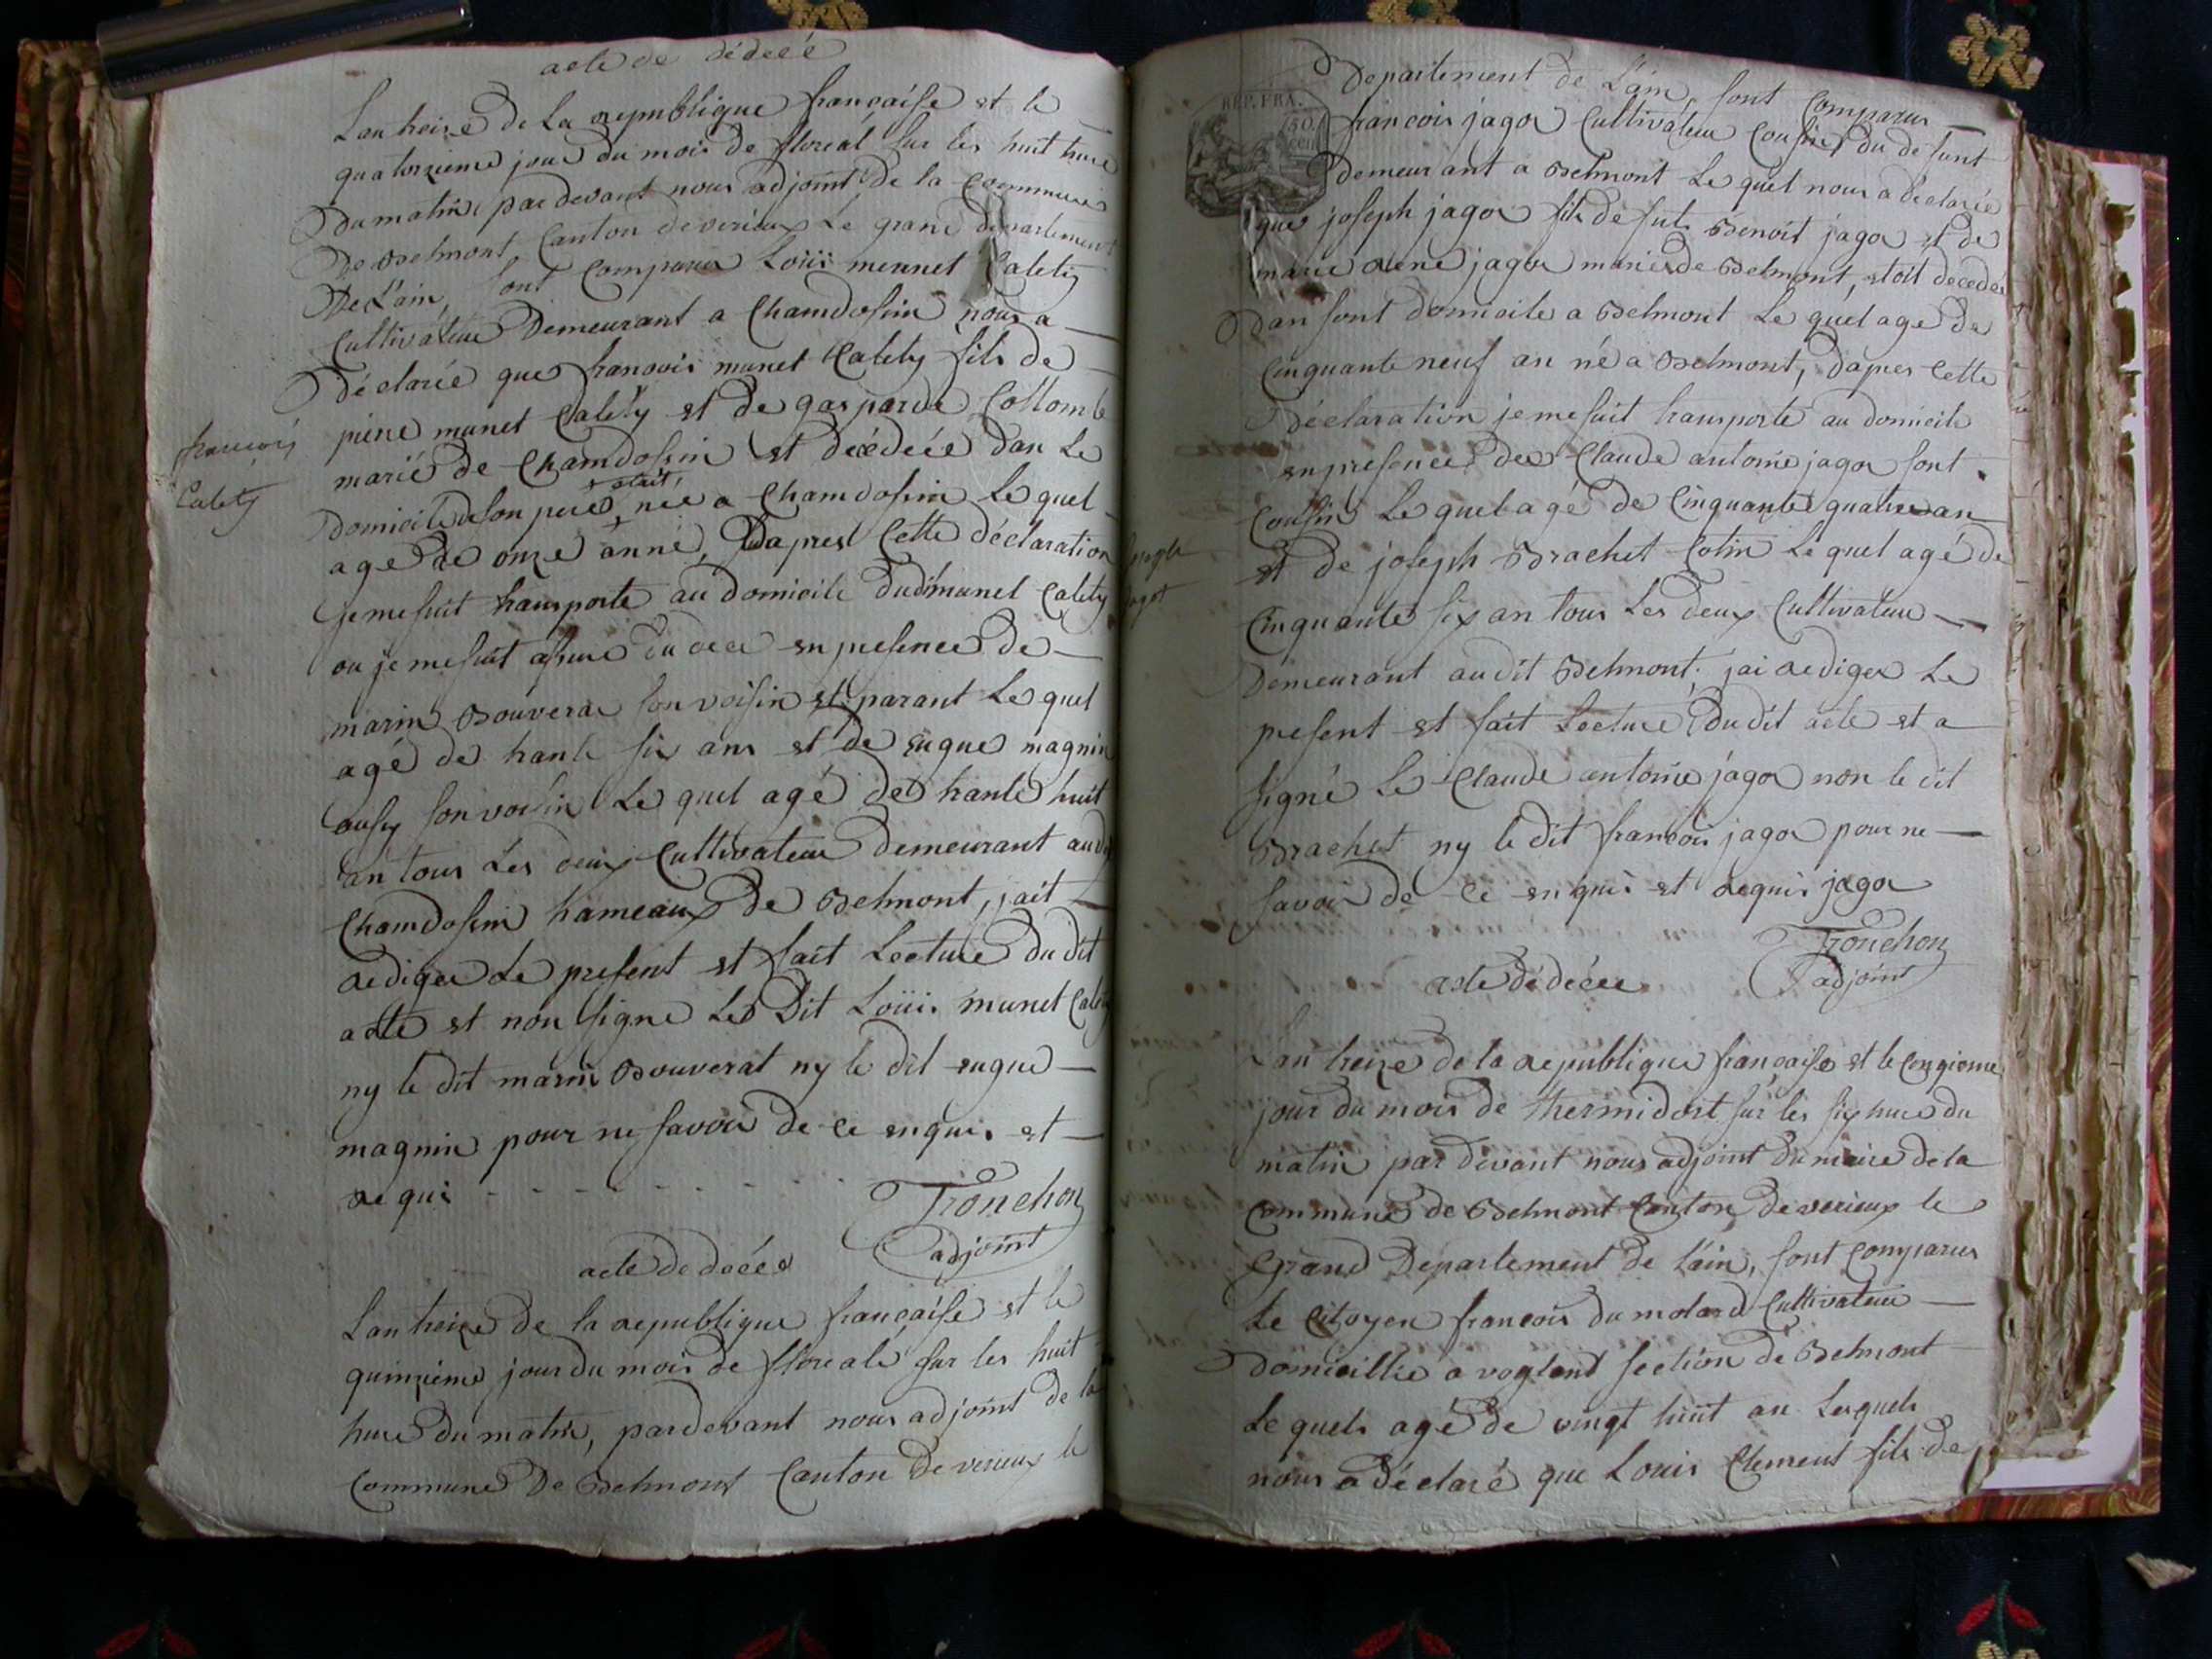 acte de dédecé
Lan treize de La republique française et le
quatorzieme jour du mois de floreal sur les huit hure
Du matin par devant nous adjoint de la Commune
De Belmont Canton de virieux Le grand departement
De L'ain, sont Comparus Loüis meunet Calety
Cultivateur Demeurant a Chamdossin nous a
Déclarée que francois munet Calety fils de
pierre munet Calety et de gasparde Collomb
marié de Chamdossin et decédeée dan Le
etait
Domicile de son pere, née a Chamdossin Le quel
age de onze anné, Dapresl Cette déclaration
je me suit transporte au domicile dudt munet Calety
ou je me suit assure du dece en presence de
marin Bouverat son voisin et parant Le quel
agé de trante six ans et de eugue magnin
aussy son voisin Le quel agé de trante huit
an tous Les deux Cultivateur demeurant audt
Chamdossin hameaux de Belmont, jait
rediger Le present et fait Lecture du dit
acte et non signe Les Dit Loüis munet Calety
ny le dit marin Bouverat ny le dit eugue
magnin pour ne savoir de ce enquis et
requi
Tronchon
adjoint
francois
Calety
acte de decée
Lan treize de la republique française et le
quinzieme jour du mois de floreale sur les huit
hure du matin, pardevant nous adjoint de la
Commune De Belmont Canton De virieux le
REP. FRA.
Departement de L'ain, sont Comparus
francois jagot Cultivateur Cousin du defunt
Demeurant a Belmont Le quel nous a déclarée
que joseph jagot fils de fut Benoit jagot et de
marie rene jagot mariee de Belmont, etoit decedée
Dan sont domicile a Belmont Le quel age de
Cinquante neuf an né a Belmont, Dapres Cette
Déclaration je me suit transporte au domicile
en presence de Claude antoine jagot sont
Cousin Le quel agé de Cinquante quatre an
et de joseph Brachet Cotin Le quel agé de
Cinquante six an tous Les deux Cultivateur
Demeurant audit Belmont, jai rediger Le
present et fait Lecture du dit acte et a
signé Le Claude antoine jagot non le dit
Brachet ny le dit francois jagot pour ne
savoir de ce enquis et requis jagot
Tronchon
adjoint
joseph
jagot
acte de décée
Lan treize de la republique française et le
jour du mois de thermidort sur les six hure du
matin par devant nous adjoint du maire de la
Commune de Belmont Canton de virieux le
grand Departement de L'ain, sont Comparus
Le Citoyen francois du molard Cultivateur
Domicillié a voglant section de Belmont
Le quels agé de vingt huit an Lesquels
nous a déclaré que Louis Clement fils de